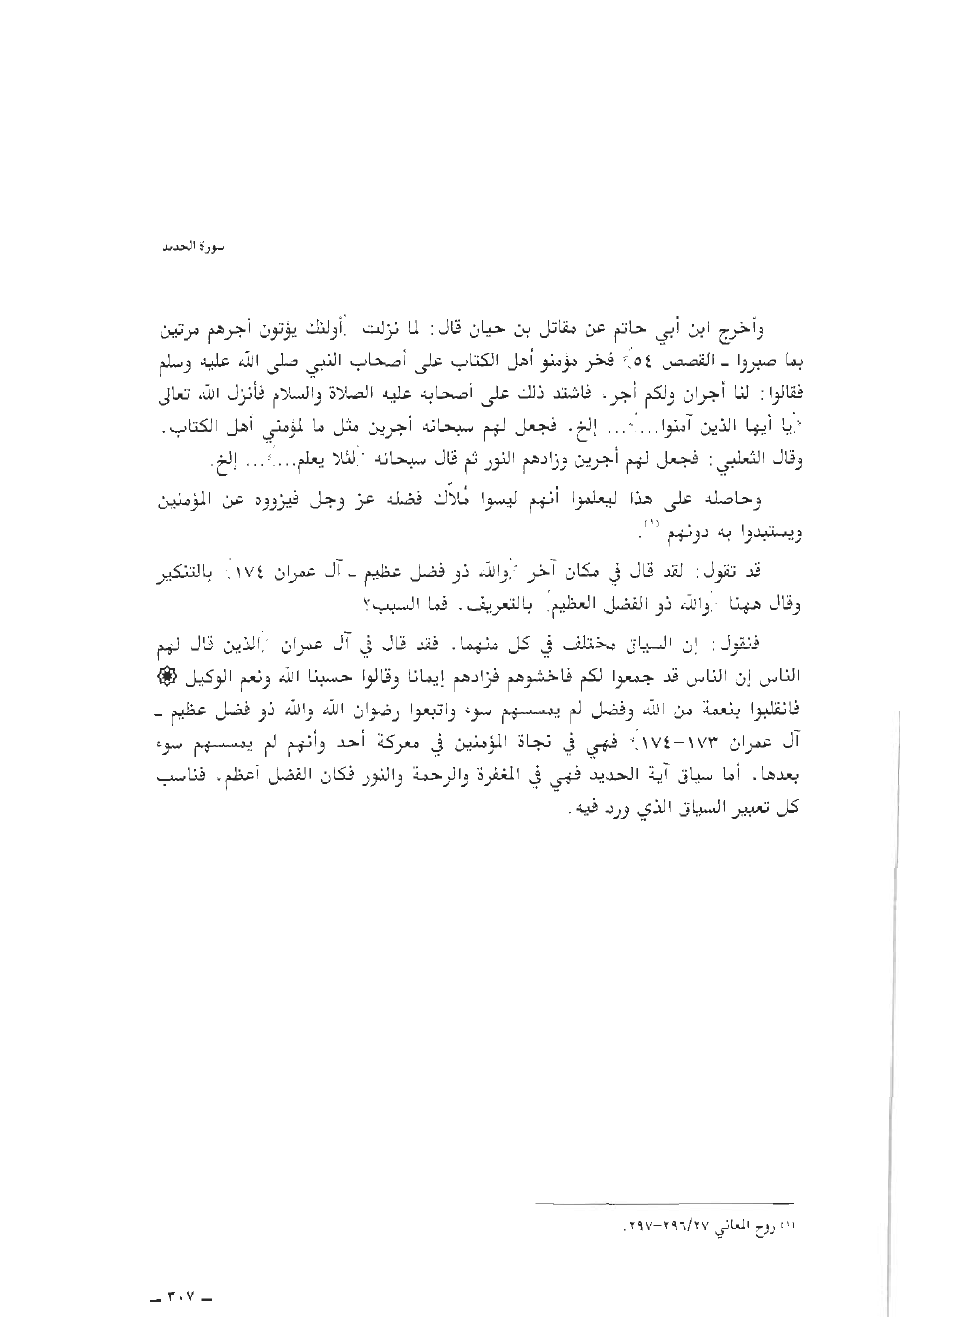 سورة الحديد
وأخرج ابن أبي حاتم عن مقاتل بن حيان قال: لما نزلت ﴿أولئك يؤتون أجرهم مرتين
بما صبروا ـ القصص ٥٤﴾ فخر مؤمنو أهل الكتاب على أصحاب النبي صلى الله عليه وسلم
فقالوا: لنا أجران ولكم أجر. فاشتد ذلك على أصحابه عليه الصلاة والسلام فأنزل الله تعالى
﴿يا أيها الذين آمنوا...﴾... إلخ. فجعل لهم سبحانه أجرين مثل ما لمؤمني أهل الكتاب.
وقال الثعلبي: فجعل لهم أجرين وزادهم النور ثم قال سبحانه ﴿لئلا يعلم...﴾... إلخ.
وحاصله على هذا ليعلموا أنهم ليسوا مُلاّك فضله عز وجل فيزووه عن المؤمنين
ويستبدوا به دونهم (١).
قد تقول: لقد قال في مكان آخر ﴿والله ذو فضل عظيم ـ آل عمران ١٧٤﴾ بالتنكير
وقال ههنا ﴿والله ذو الفضل العظيم﴾ بالتعريف. فما السبب؟
فنقول: إن السياق مختلف في كل منهما. فقد قال في آل عمران ﴿الذين قال لهم
الناس إن الناس قد جمعوا لكم فاخشوهم فزادهم إيمانا وقالوا حسبنا الله ونعم الوكيل ۞
فانقلبوا بنعمة من الله وفضل لم يمسسهم سوء واتبعوا رضوان الله والله ذو فضل عظيم ـ
آل عمران ١٧٣-١٧٤﴾ فهي في نجاة المؤمنين في معركة أحد وأنهم لم يمسسهم سوء
بعدها. أما سياق آية الحديد فهي في المغفرة والرحمة والنور فكان الفضل أعظم. فناسب
كل تعبير السياق الذي ورد فيه.
(١) روح المعاني ٢٧/٢٩٦-٢٩٧.
ـ ٣٠٧ ـ